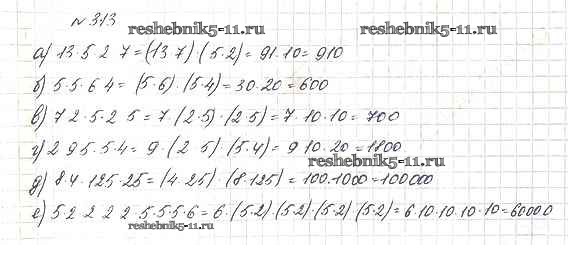 № 313
reshebnik5-11.ru reshebnik5-11.ru
а) 13 5 2 7 = (13 7) (5·2) = 91·10 = 910
б) 5·5·6 4 = (5·6) · (5·4) = 30·20 = 600
в) 7 2 · 5 · 2 5 = 7 · (2·5) · (2·5) = 7·10·10 = 700
г) 2 9 5 · 5·4 = 9 · (2 5) · (5·4) = 9 10·20 = 1800
reshebnik5-11.ru
д) 8·4 · 125·25 = (4·25) · (8·125) = 100·1000 = 100000
е) 5·2 2 2 2 · 5·5·5·6 = 6·(5·2)·(5·2)·(5·2) (5·2) = 6·10·10·10·10 = 60000
reshebnik5-11.ru